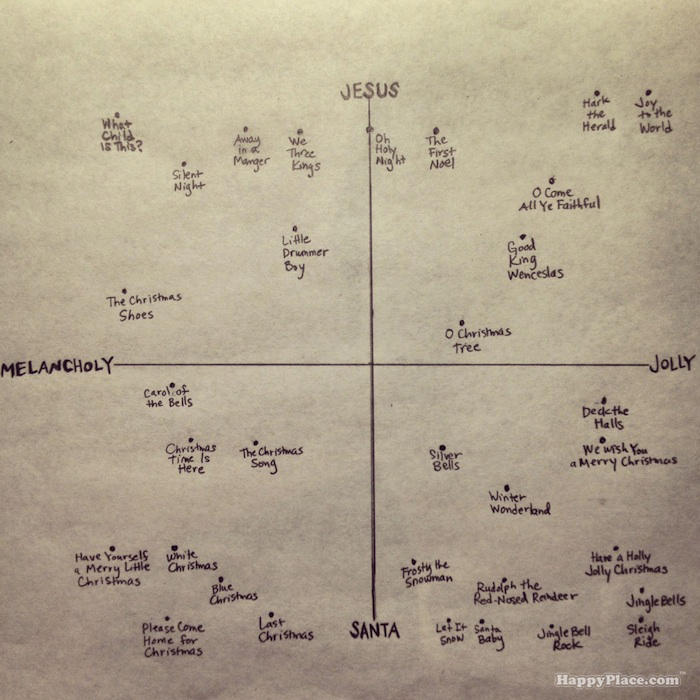 JESUS
What
Child
Is This?
Silent
Night
Away
in a
Manger
We
Three
Kings
Oh
Holy
Night
The
First
Noel
Hark
the
Herald
Joy
to the
World
O Come
All Ye Faithful
Little
Drummer
Boy
Good
King
Wenceslas
The Christmas
Shoes
O Christmas
Tree
MELANCHOLY
JOLLY
Carol of
the Bells
Christmas
Time Is
Here
The Christmas
Song
Silver
Bells
Deck the
Halls
We Wish You
a Merry Christmas
Winter
Wonderland
Have Yourself
a Merry Little
Christmas
White
Christmas
Blue
Christmas
Please Come
Home for
Christmas
Last
Christmas
SANTA
Frosty the
Snowman
Rudolph the
Red-Nosed Reindeer
Have a Holly
Jolly Christmas
Jingle Bells
Let It
Snow
Santa
Baby
Jingle Bell
Rock
Sleigh
Ride
HappyPlace.com